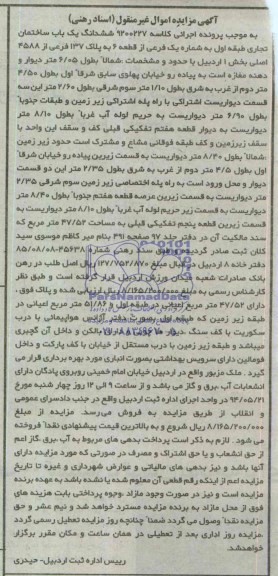 آگهی مزایده اموال غیرمنقول (اسناد رهنی)
به موجب پرونده اجرائی کلاسه ۹۲۰۰۲۲۷ ششدانگ یک باب ساختمان
تجاری طبقه اول به شماره یک فرعی از قطعه ۶ به پلاک ۱۳۷ فرعی از ۴۵۸۸
اصلی بخش ۱ اردبیل با حدود و مشخصات :شمالاً بطول ۶/۰۵ متر دیوار و
دهنه مغازه است به پیاده رو خیابان پهلوی سابق شرقاً اول بطول ۴/۵۰
متر دوم از غرب به شرق بطول ۱/۱۰ متر سوم شرقی بطول ۲/۶۰ متر این سه
قسمت دیواریست اشتراکی با راه پله اشتراکی زیر زمین و طبقات جنوباً
بطول ۶/۹۰ متر دیواریست به حریم لوله آب غرباً بطول ۸/۱۰ متر
دیواریست به دیوار قطعه هفتم تفکیکی قبلی کف و سقف این واحد با
سقف زیرزمین و کف طبقه فوقانی مشاع و مشترک است حدود زیر زمین
:شمالاً بطول ۸/۴۰ متر دیواریست به قسمت زیرین پیاده رو خیابان شرقاً
اول بطول ۴/۵ متر دوم از غرب به شرق بطول ۲/۳۵ متر این دو قسمت
دیوار و محل ورود است به راه پله اختصاصی زیر زمین سوم شرقی ۲/۳۵
متر دیواریست به قسمت زیرین عرصه قطعه هفتم جنوباً بطول ۸/۴۰ متر
دیواریست به قسمت زیر حریم لوله آب غرباً بطول ۸/۱۰ متر دیواریست به
قسمت زیرین قطعه پنجم تفکیکی قبلی به مساحت ۴۷/۵۲ متر مربع که
سند مالکیت آن در دفتر جلد ۹۷ صفحه ۴۹۱ بنام میر کاظم موسوی سید
کنان ثبت صادر گردیده و طبق سند رهنی شماره ۳۵۶۳۸-۸۵/۰۸/۰۸
دفتر خانه ۸ اردبیل در قبال مبلغ ریال اصل طلب در رهن
بانک صادرات شعبه میدان ورزش اردبیل قرار گرفته است و طبق نظر
کارشناس رسمی به مبلغ ۸/۱۶۵/۲۰۰/۰۰۰ ریال ارزیابی شده و پلاک فوق ،
دارای ۴۷/۵۲ متر مربع اعیانی در طبقه اول و ۵۱/۸۶ متر مربع اعیانی در
طبقه زیر زمین که طبقه اول بصورت دفتر آژانس هواپیمایی با درب
سکوریت با کف سنگ ، دیوار بالکن و داخل آن گچبری
میباشد و طبقه زیر زمین با درب مستقل از خیابان با کف پارکت و داخل
فومالین دارای سرویس بهداشتی بصورت انباری مورد بهره برداری قرار می
گیرد . ملک مزبور واقع در اردبیل خیابان امام خمینی روبروی پادگان دارای
انشعابات آب ،برق و گاز می باشد و از ساعت ۹ الی ۱۲ روز چهار شنبه مورخ
۹۴/۰۵/۲۱ در واحد اجرای اداره ثبت اردبیل واقع در جنب دادسرای عمومی
و انقلاب از طریق مزایده به فروش می‌رسد. مزایده از مبلغ
۸/۱۶۵/۲۰۰/۰۰۰ ریال شروع و به بالاترین قیمت پیشنهادی نقداً فروخته
می شود . لازم به ذکر است پرداخت بدهی های مربوط به آب ،برق ،گاز اعم
از حق انشعاب و یا حق اشتراک و مصرف در صورتی که مورد مزایده دارای
آنها باشد و نیز بدهی های مالیاتی و عوارض شهرداری و غیره تا تاریخ
مزایده اعم از اینکه رقم قطعی آن معلوم شده یا نشده باشد به عهده برنده
مزایده است و نیز در صورت وجود مازاد ،وجوه پرداختی بابت هزینه های
فوق از محل مازاد به برنده مزایده مسترد خواهد شد و نیم عشر و حق
مزایده نقداً وصول می گردد ضمناً چنانچه روز مزایده تعطیل رسمی گردد
،مزایده روز اداری بعد از تعطیلی در همان ساعت و مکان مقرر برگزار
خواهدشد.
رییس اداره ثبت اردبیل- حیدری